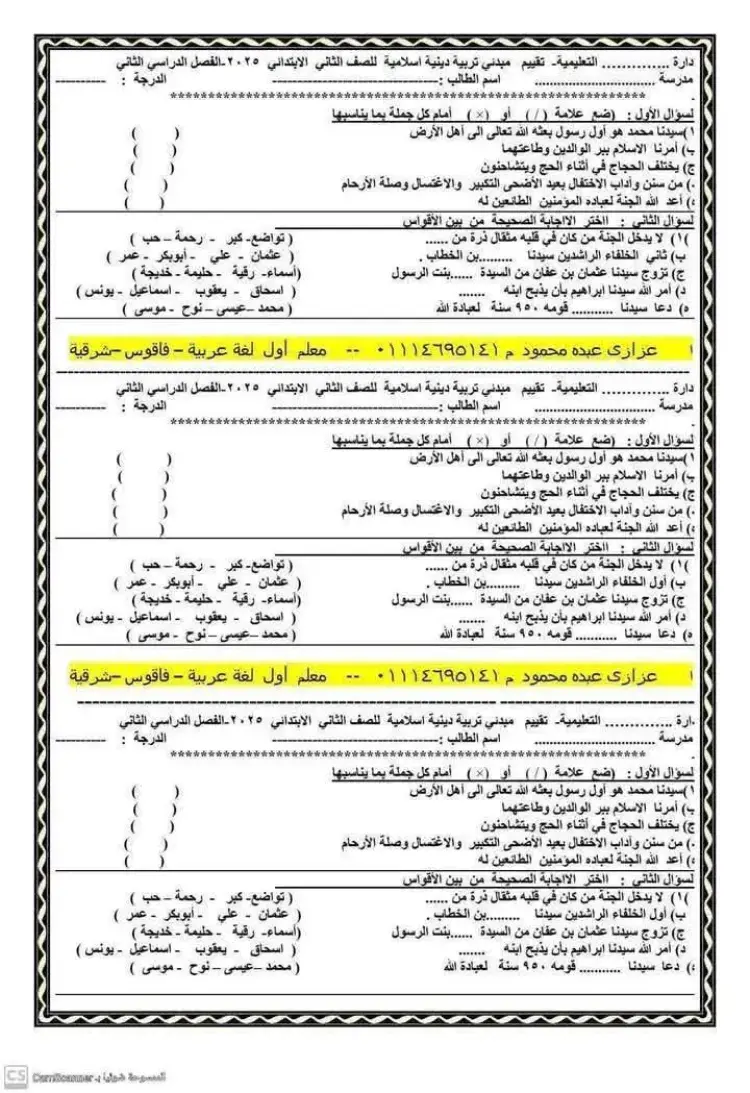 دارة .............. التعليمية- تقييم مبدئي تربية دينية اسلامية للصف الثاني الابتدائي ٢٠٢٥-الفصل الدراسي الثاني
مدرسة .............................. اسم الطالب :------------------------------ الدرجة : ----------
********************************************************************
لسؤال الأول : (ضع علامة ( / ) أو (×) أمام كل جملة بما يناسبها
١)سيدنا محمد هو أول رسول بعثه الله تعالى الى أهل الأرض ( )
ب) أمرنا الاسلام ببر الوالدين وطاعتهما ( )
ج) يختلف الحجاج في أثناء الحج ويتشاحنون ( )
.) من سنن وآداب الاختفال بعيد الأضحى التكبير والاغتسال وصلة الأرحام ( )
) أعد الله الجنة لعباده المؤمنين الطائعين له ( )
لسؤال الثاني : ااختر الااجابة الصحيحة من بين الأقواس
)١) لا يدخل الجنة من كان في قلبه مثقال ذرة من ...... ( تواضع- كبر - رحمة – حب )
ب) ثاني الخلفاء الراشدين سيدنا .........بن الخطاب . ( عثمان - علي - أبوبكر - عمر )
ج) تزوج سيدنا عثمان بن عفان من السيدة ......بنت الرسول (أسماء- رقية - حليمة - خديجة )
د) أمر الله سيدنا ابراهيم بأن يذبح ابنه ....... ( اسحاق - يعقوب - اسماعيل - يونس )
ه) دعا سيدنا ........... قومه ٩٥٠ سنة لعبادة الله ( محمد –عيسى – نوح - موسى )
ا عزازى عبده محمود م ٠١١١٤٦٩٥١٤١ -- معلم أول لغة عربية – فاقوس –شرقية
دارة .............. التعليمية- تقييم مبدئي تربية دينية اسلامية للصف الثاني الابتدائي ٢٠٢٥-الفصل الدراسي الثاني
مدرسة .............................. اسم الطالب :------------------------------ الدرجة : ----------
********************************************************************
لسؤال الأول : (ضع علامة ( / ) أو (×) أمام كل جملة بما يناسبها
١)سيدنا محمد هو أول رسول بعثه الله تعالى الى أهل الأرض ( )
ب) أمرنا الاسلام ببر الوالدين وطاعتهما ( )
ج) يختلف الحجاج في أثناء الحج ويتشاحنون ( )
.) من سنن وآداب الاختفال بعيد الأضحى التكبير والاغتسال وصلة الأرحام ( )
) أعد الله الجنة لعباده المؤمنين الطائعين له ( )
لسؤال الثاني : ااختر الااجابة الصحيحة من بين الأقواس
)١) لا يدخل الجنة من كان في قلبه مثقال ذرة من ...... ( تواضع- كبر - رحمة – حب )
ب) أول الخلفاء الراشدين سيدنا .........بن الخطاب . ( عثمان - علي - أبوبكر - عمر )
ج) تزوج سيدنا عثمان بن عفان من السيدة ......بنت الرسول (أسماء- رقية - حليمة - خديجة )
د) أمر الله سيدنا ابراهيم بأن يذبح ابنه ....... ( اسحاق - يعقوب - اسماعيل - يونس )
ه) دعا سيدنا ........... قومه ٩٥٠ سنة لعبادة الله ( محمد –عيسى – نوح - موسى )
ا عزازى عبده محمود م ٠١١١٤٦٩٥١٤١ -- معلم أول لغة عربية – فاقوس –شرقية
.ارة .............. التعليمية- تقييم مبدئي تربية دينية اسلامية للصف الثاني الابتدائي ٢٠٢٥-الفصل الدراسي الثاني
مدرسة .............................. اسم الطالب :------------------------------ الدرجة : ----------
********************************************************************
لسؤال الأول : (ضع علامة ( / ) أو (×) أمام كل جملة بما يناسبها
١)سيدنا محمد هو أول رسول بعثه الله تعالى الى أهل الأرض ( )
ب) أمرنا الاسلام ببر الوالدين وطاعتهما ( )
ج) يختلف الحجاج في أثناء الحج ويتشاحنون ( )
.) من سنن وآداب الاختفال بعيد الأضحى التكبير والاغتسال وصلة الأرحام ( )
) أعد الله الجنة لعباده المؤمنين الطائعين له ( )
لسؤال الثاني : ااختر الااجابة الصحيحة من بين الأقواس
)١) لا يدخل الجنة من كان في قلبه مثقال ذرة من ...... ( تواضع- كبر - رحمة – حب )
ب) أول الخلفاء الراشدين سيدنا .........بن الخطاب . ( عثمان - علي - أبوبكر - عمر )
ج) تزوج سيدنا عثمان بن عفان من السيدة ......بنت الرسول (أسماء- رقية - حليمة - خديجة )
د) أمر الله سيدنا ابراهيم بأن يذبح ابنه ....... ( اسحاق - يعقوب - اسماعيل - يونس )
) دعا سيدنا ........... قومه ٩٥٠ سنة لعبادة الله ( محمد –عيسى – نوح - موسى )
CS الممسوحة ضوئيا بـ CamScanner